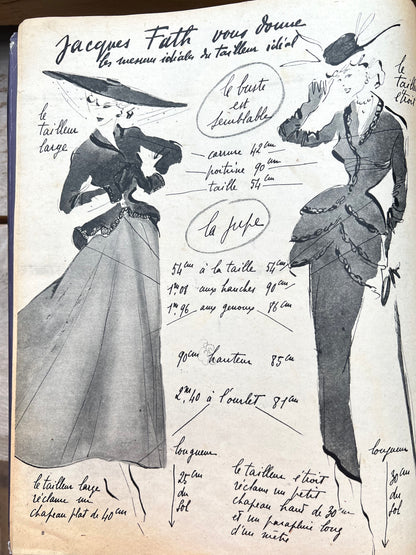 Jacques Fath vous donne
les mesures idéales du tailleur idéal
le
tailleur
large
le buste
est
semblable
le
tailleur
étroit
carrure 42 cm
poitrine 90 cm
taille 54 cm
la jupe
54 cm à la taille 54 cm
1m 08 aux hanches 90 cm
1m 96 aux genoux 86 cm
90 cm hauteur 85 cm
2m,40 à l'ourlet 81 cm
longueur
25 cm
du
sol
longueur
30 cm
du
sol
le tailleur large
réclame un
chapeau plat de 40 cm
le tailleur étroit
réclame un petit
chapeau haut de 30 cm
et un parapluie long
d'un mètre